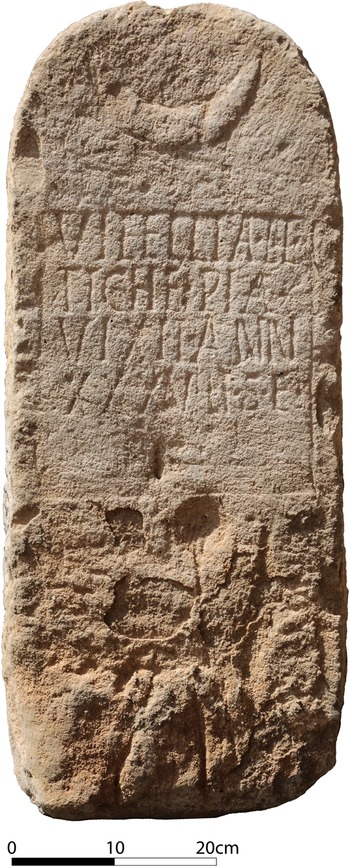 VITELLIA
TICHE PIA
VIXIT ANNI
H S E
0 10 20cm